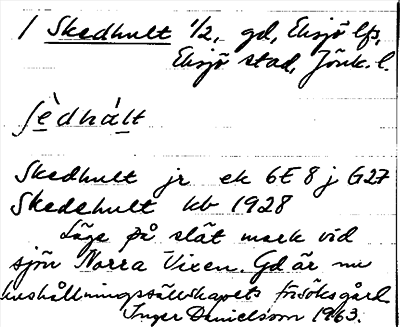 / Skedhult ½, gd, Eksjö lfs,
Eksjö stad, Jönk. l.
ʃèdhál̲t
Skedhult jr ek 6E 8 j G27
Skedehult kb 1928
Läge på slät mark vid
sjön Norra Vixen. Gd är nu
hushållningssällskapets försöksgård
Inger Danielsson 1963.